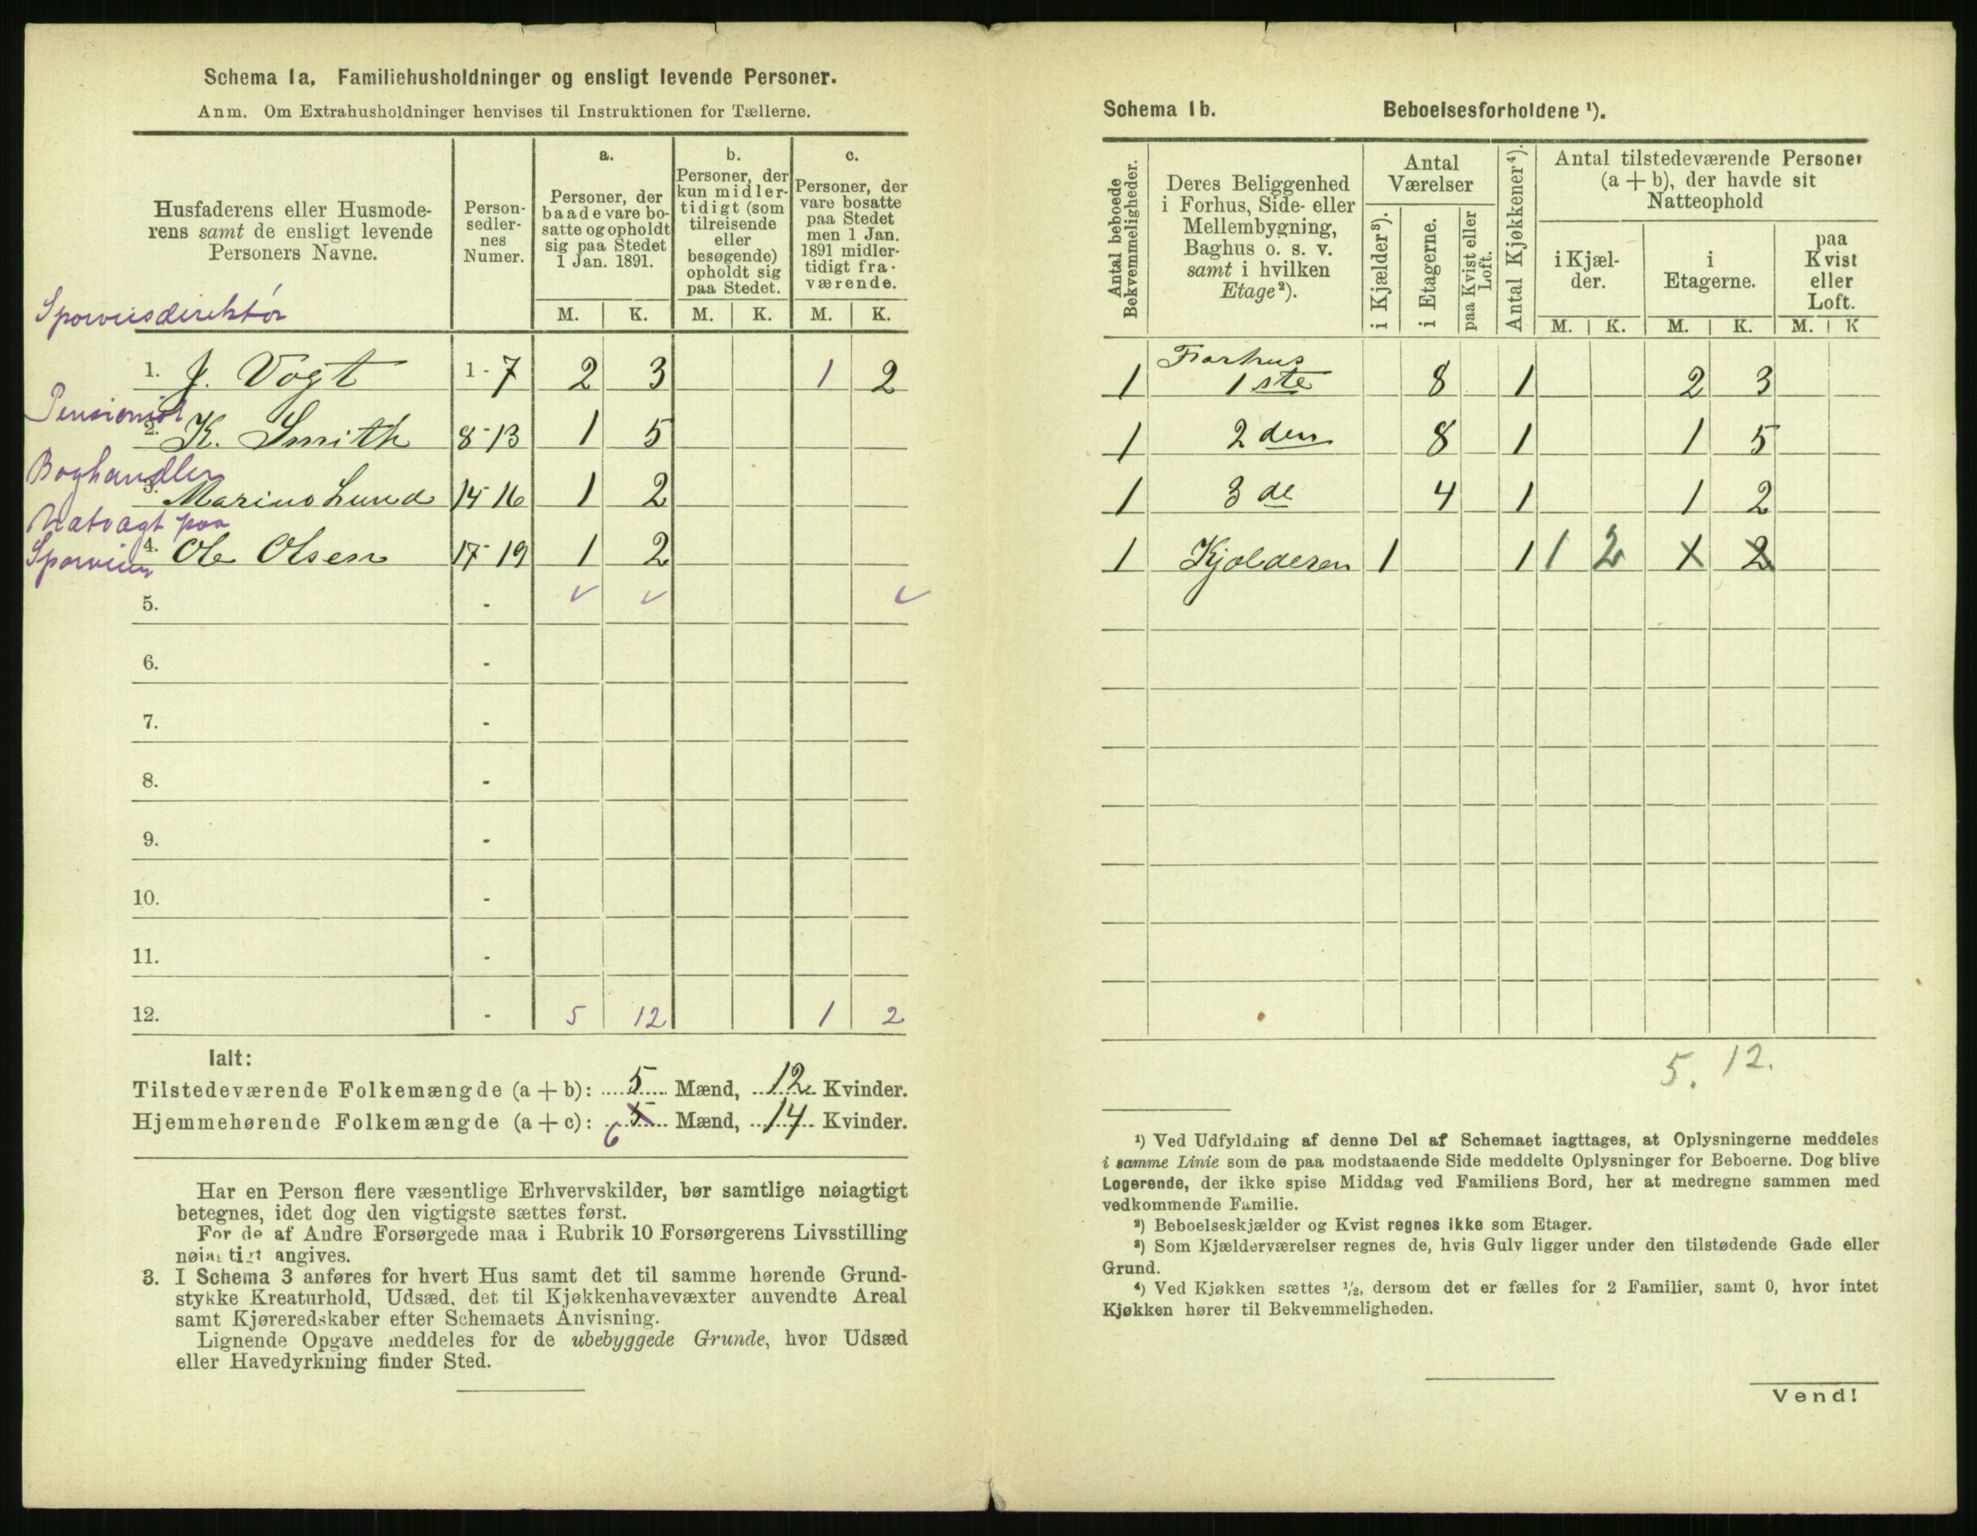 Schema 1a. Familiehusholdninger og ensligt levende Personer.
Anm. Om Extrahusholdninger henvises til Instruktionen for Tællerne.
Husfaderens eller Husmode-
rens samt de ensligt levende
Personers Navne.
Person-
sedler-
nes
Numer.
a.
Personer, der
baade vare bo-
satte og opholdt
sig paa Stedet
1 Jan. 1891.
b.
Personer, der
kun midler-
tidigt (som
tilreisende
eller
besøgende)
opholdt sig
paa Stedet.
c.
Personer, der
vare bosatte
paa Stedet
men 1 Jan.
1891 midler-
tidigt fra-
værende.
M. K. M. K. M. K.
Sporveisdirektør
1. J. Vogt 1 - 7 2 3 1 2
Pensionist
2. K. Smith 8 - 13 1 5
Boghandler
3. Marius Lund 14 - 16 1 2
Natvagt paa
4. Ole Olsen 17 - 19 1 2
Sporveien
5. - ✓ ✓ ✓
6. -
7. -
8. -
9. -
10. -
11. -
12. - 5 12 1 2
Ialt:
Tilstedeværende Folkemængde (a + b): 5 Mænd, 12 Kvinder.
Hjemmehørende Folkemængde (a + c): 6 5 Mænd, 14 Kvinder.
Har en Person flere væsentlige Erhvervskilder, bør samtlige nøiagtigt
betegnes, idet dog den vigtigste sættes først.
For de af Andre Forsørgede maa i Rubrik 10 Forsørgerens Livsstilling
nøiagtigt angives.
3. I Schema 3 anføres for hvert Hus samt det til samme hørende Grund-
stykke Kreaturhold, Udsæd, det til Kjøkkenhavevæxter anvendte Areal
samt Kjøreredskaber efter Schemaets Anvisning.
Lignende Opgave meddeles for de ubebyggede Grunde, hvor Udsæd
eller Havedyrkning finder Sted.
Schema 1b. Beboelsesforholdene ¹).
Antal beboede
Bekvemmeligheder.
Deres Beliggenhed
i Forhus, Side- eller
Mellembygning,
Baghus o. s. v.
samt i hvilken
Etage²).
Antal
Værelser
i Kjælder³).
i Etagerne.
paa Kvist eller
Loft.
Antal Kjøkkener⁴).
Antal tilstedeværende Personer
(a + b), der havde sit
Natteophold
i Kjæl-
der.
i
Etagerne.
paa
Kvist
eller
Loft.
M. K. M. K. M. K
1 Forhus
1 ste 8 1 2 3
1 2 den 8 1 1 5
1 3 de 4 1 1 2
1 Kjælderen 1 1 1 2 1 2
5. 12.
¹) Ved Udfyldning af denne Del af Schemaet iagttages, at Oplysningerne meddeles
i samme Linie som de paa modstaaende Side meddelte Oplysninger for Beboerne. Dog blive
Logerende, der ikke spise Middag ved Familiens Bord, her at medregne sammen med
vedkommende Familie.
²) Beboelseskjælder og Kvist regnes ikke som Etager.
³) Som Kjælderværelser regnes de, hvis Gulv ligger under den tilstødende Gade eller
Grund.
⁴) Ved Kjøkken sættes ¹/₂, dersom det er fælles for 2 Familier, samt 0, hvor intet
Kjøkken hører til Bekvemmeligheden.
Vend!